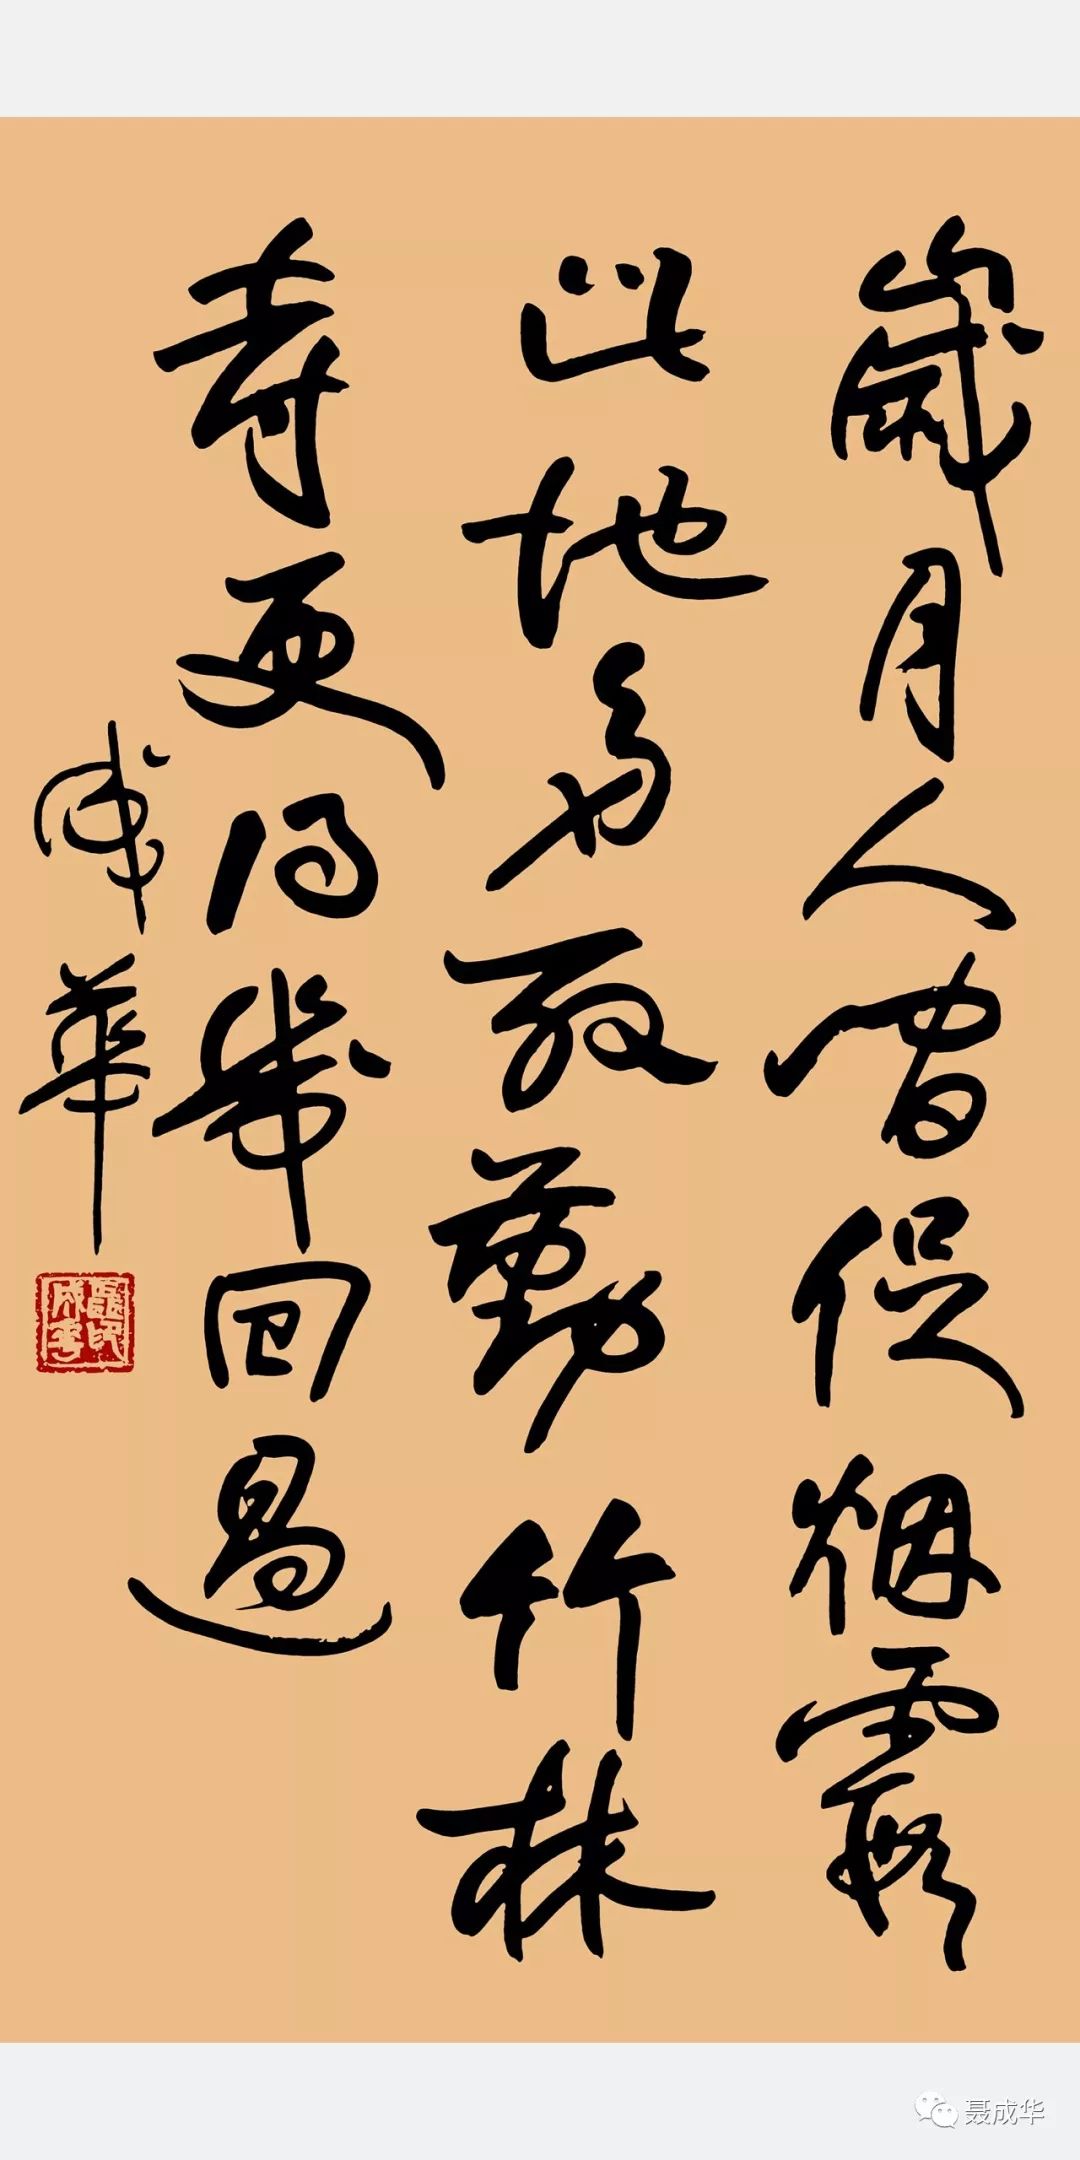 歲月人間促烟霞
此地多殷勤竹林
寺更得幾回過
成華
聶印成華
聂成华